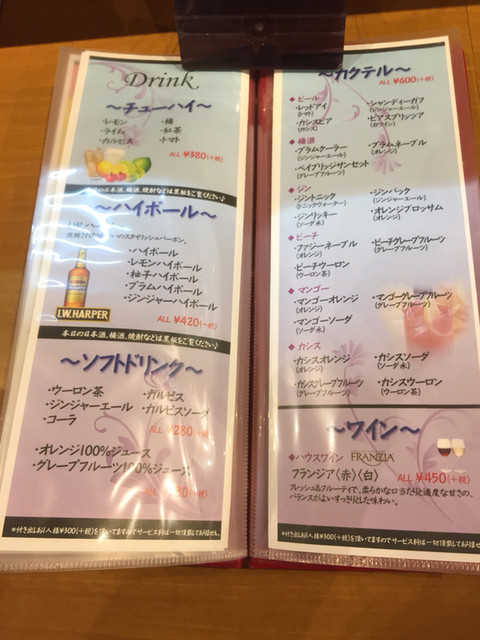 Drink
～チューハイ～
・レモン ・梅
・ライム ・紅茶
・カルピス ・トマト
ALL ¥380(+税)
本日の日本酒、梅酒、焼酎などは黒板をご覧ください♪
～ハイボール～
洗練された味わいのスタイリッシュバーボン。
・ハイボール
・レモンハイボール
・柚子ハイボール
・プラムハイボール
・ジンジャーハイボール
I.W.HARPER
ALL ¥420(+税)
本日の日本酒、梅酒、焼酎などは黒板をご覧ください♪
～ソフトドリンク～
・ウーロン茶 ・カルピス
・ジンジャーエール ・カルピスソーダ
・コーラ
ALL ¥280(+税)
・オレンジ100%ジュース
・グレープフルーツ100%ジュース
(+税)
*付き出しお1人様¥300(+税)を頂いてますのでサービス料は一切頂戴しておりません。
～カクテル～
ALL ¥600(+税)
◆ビール
・レッドアイ ・シャンディーガフ
(トマト) (ジンジャーエール)
・カシスビア ・ビアスプリッツア
(カシス) (白ワイン)
◆梅酒
・プラムクーラー ・プラムネーブル
(ジンジャーエール) (オレンジ)
・ベイブリッジサンセット
(グレープフルーツ)
◆ジン
・ジントニック ・ジンバック
(トニックウォーター) (ジンジャーエール)
・ジンリッキー ・オレンジブロッサム
(ソーダ水) (オレンジ)
◆ピーチ
・ファジーネーブル ・ピーチグレープフルーツ
(オレンジ) (グレープフルーツ)
・ピーチウーロン
(ウーロン茶)
◆マンゴー
・マンゴーオレンジ ・マンゴーグレープフルーツ
(オレンジ) (グレープフルーツ)
・マンゴーソーダ
(ソーダ水)
◆カシス
・カシスオレンジ ・カシスソーダ
(オレンジ) (ソーダ水)
・カシスグレープフルーツ ・カシスウーロン
(グレープフルーツ) (ウーロン茶)
～ワイン～
◆ハウスワイン FRANZIA
フランジア〈赤〉〈白〉 ALL ¥450(+税)
フレッシュ&フルーティで、柔らかな口当たりと適度な甘さの、
バランスがよいすっきりとした味わい。
*付き出しお1人様¥300(+税)を頂いてますのでサービス料は一切頂戴しておりません。